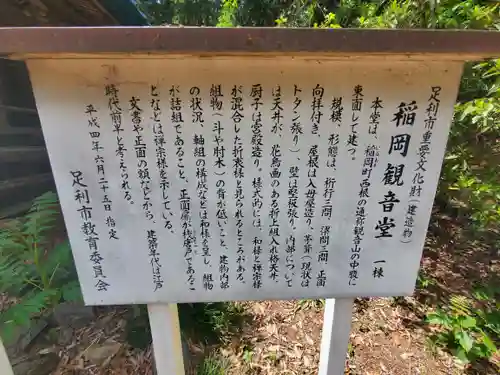 足利市重要文化財（建造物）
稲岡観音堂　一棟
本堂は、稲岡町西根の通称観音山の中腹に
東面して建つ。
規模、形態は、桁行三間、梁間三間、正面
向拝付き、屋根は入母屋造り、茅葺（現状は
トタン張り）、壁は竪板張り。内部について
は天井が、花鳥画のある折上組入れ格天井、
厨子は宮殿造り。様式的には、和様と禅宗様
が混合した折衷様と見られるところがある。
組物（斗や肘木）の背が低いこと、建物内部
の状況、軸組の構成などは和様を呈し、組物
が詰組であること、正面扉が桟唐戸であるこ
となどは禅宗様を示している。
文書や正面の額などから、建築年代は江戸
時代前半と考えられる。
平成四年六月二十五日指定
足利市教育委員会